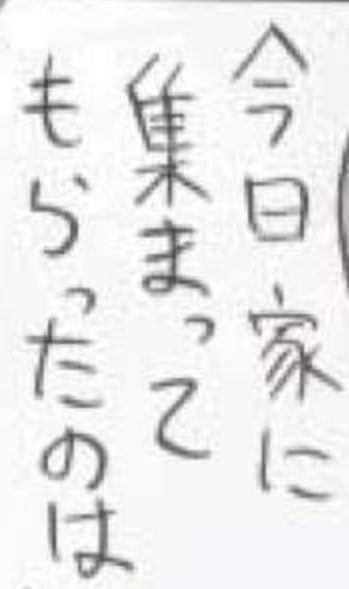 今日家に
集まって
もらったのは